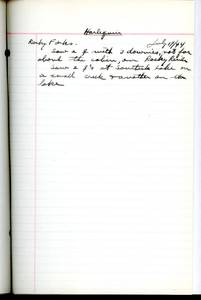 Harlequin
Rocky Forks. July 17/44
Saw a ♀ with 3 downies, not far
about the cabin, on Rocky River
Saw 2 ♀'s at Southesk Lake on
a small creek & another on the
lake